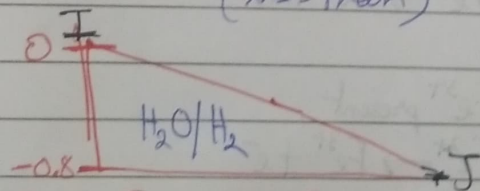 I
0
H₂O/H₂
-0.8
J